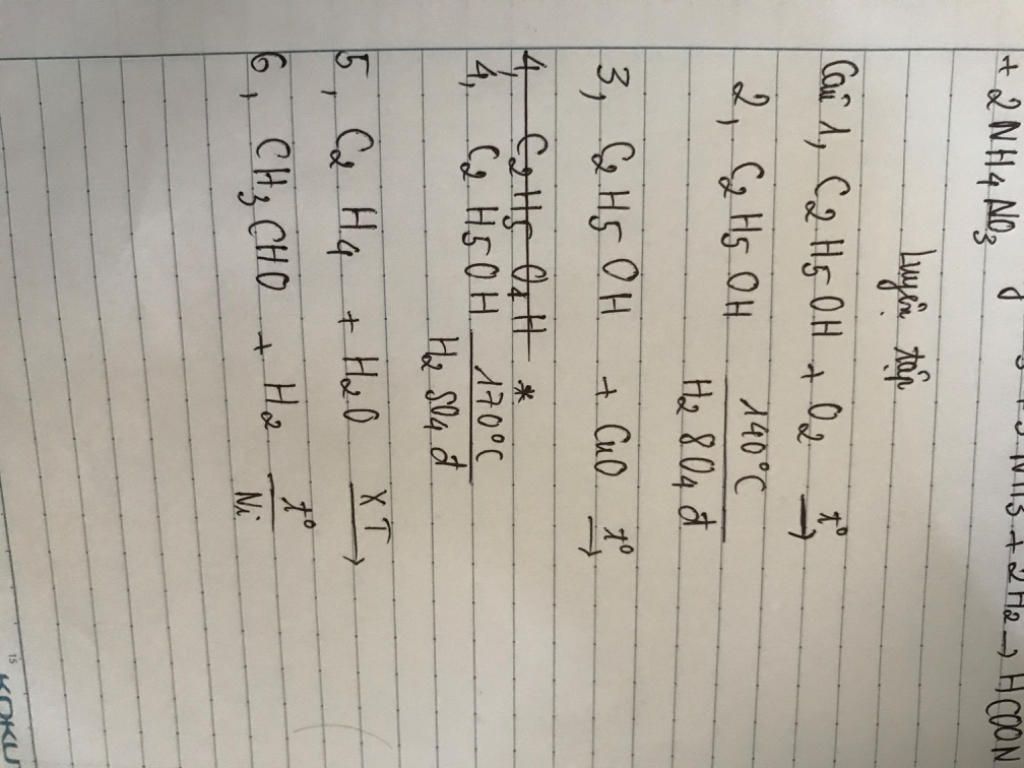 + 2NH4NO3
+ 3NH3 + 2H2 → HCOON
Luyện tập
Câu 1, C2H5OH + O2 t° →
2, C2H5OH 140°C
H2SO4 đ
3, C2H5OH + CuO t° →
4, C2H5-O4-H *
4, C2H5OH 170°C
H2SO4 đ
5, C2H4 + H2O XT →
6, CH3CHO + H2 t°
Ni
15
KOKU